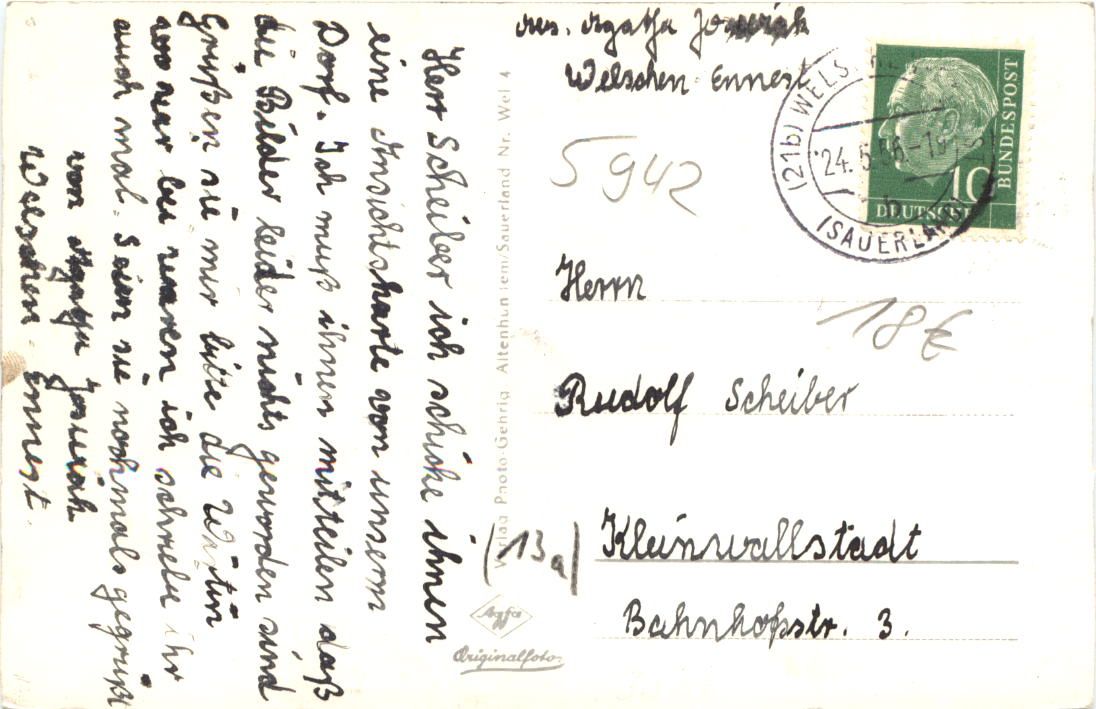 Herr Scheiber ich schicke ihnen
eine Ansichtskarte von unserm
Dorf. Ich muß ihnen mitteilen daß
die Bilder leider nichts geworden sind
Grüßen sie mir bitte die Wirtin
wo wir bei waren ich schreibe ihr
auch mal. Seien sie nochmals gegrüßt
von Agatha
Welschen Ennest.
Abs. Agatha
Welschen Ennest
5942
(21b) WELSCHEN
24.5.56-1
b
(SAUERLAND)
BUNDESPOST
10
DEUTSCHE
Herrn
18 €
Rudolf Scheiber
(13a) Kleinwallstadt
Bahnhofstr. 3.
Verlag Photo-Gehrig Altenhundem/Sauerland Nr. Wel 4
Agfa
Originalfoto